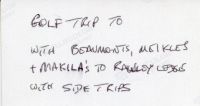 GOLF TRIP TO
WITH BEAUMONTS, MEIKLES
+ MAKILLA'S TO RAWLEY
WITH SIDE TRIPS